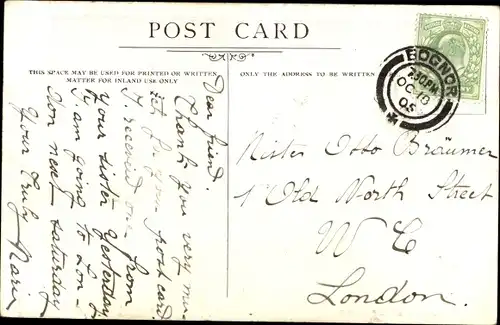 POST CARD
THIS SPACE MAY BE USED FOR PRINTED OR WRITTEN
MATTER FOR INLAND USE ONLY
ONLY THE ADDRESS TO BE WRITTEN
BOGNOR
2.30PM
OC 10
05
Dear friend.
Thank you very mu-
for your post card.
I received one from
your sister yesterday
I am going to Lon-
don next saturday
Your truly
Mister Otto Bräumer
1 Old North Street
W C
London.